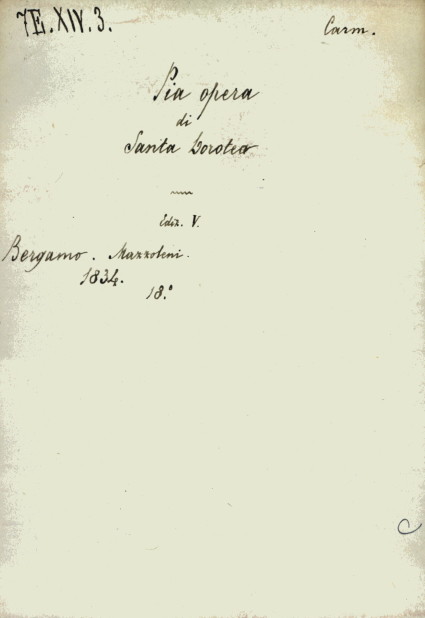 7E.XIV.3.
Carm.
Pia opera
di
Santa Dorotea
Ediz. V.
Bergamo. Mazzoleni.
1834.
18.º